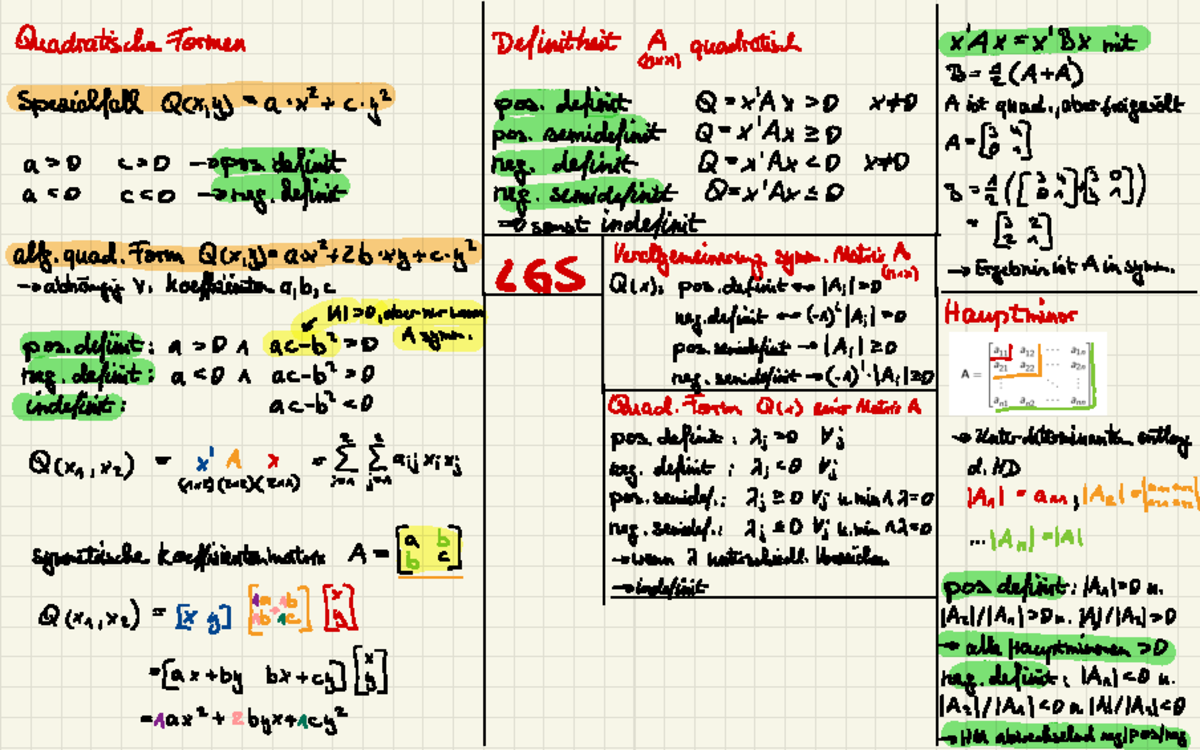 Quadratische Formen
Spezialfall Q(x,y) = a·x² + c·y²
a > 0 c > 0 → pos. definit
a < 0 c < 0 → neg. definit
allg. quad. Form Q(x,y) = ax² + 2b·xy + c·y²
→ abhängig v. Koeffizienten a, b, c
|A| > 0, aber nur wenn
A symm.
pos. definit: a > 0 ∧ ac-b² > 0
neg. definit: a < 0 ∧ ac-b² > 0
indefinit: ac-b² < 0
Q(x₁, x₂) = x' A x = ∑ ∑ aij xi xj
(1×2)(2×2)(2×1)
symmetrische Koeffizientenmatrix A = [a b
b c]
Q(x₁, x₂) = [x y] [1a 1b
1b 1c] [x
y]
= [ax + by bx + cy] [x
y]
= 1ax² + 2byx + 1cy²
Definitheit A quadratisch
(n×n)
pos. definit Q = x'Ax > 0 x≠0
pos. semidefinit Q = x'Ax ≥ 0
neg. definit Q = x'Ax < 0 x≠0
neg. semidefinit Q = x'Ax ≤ 0
→ sonst indefinit
LGS
Verallgemeinerung symm. Matrix A
(n×n)
Q(x): pos. definit ↔ |Ai| > 0
neg. definit ↔ (-1)ⁱ |Ai| > 0
pos. semidefinit → |Ai| ≥ 0
neg. semidefinit → (-1)ⁱ · |Ai| ≥ 0
Quad. Form Q(x) einer Matrix A
pos. definit: λj > 0 ∀j
neg. definit: λj < 0 ∀j
pos. semidef.: λj ≥ 0 ∀j u. min 1 λ = 0
neg. semidef.: λj ≤ 0 ∀j u. min 1 λ = 0
→ wenn λ unterschiedl. Vorzeichen
→ indefinit
x'Ax = x'Bx mit
B = ½ (A + A')
A ist quad., aber frei gewählt
A = [3 4
0 1]
B = ½ ([3 4
0 1] + [3 0
4 1])
= [3 2
2 1]
→ Ergebnis ist A in symm.
Hauptminor
A = [a11 a12 ⋯ a1n
a21 a22 ⋯ a2n
⋮ ⋱ ⋮
an1 an2 ⋯ ann]
→ Unterdeterminanten entlang
d. HD
|A₁| = a₁₁, |A₂| = |a₁₁ a₁₂
a₂₁ a₂₂|
... |An| = |A|
pos definit: |A₁| > 0 u.
|A₂|/|A₁| > 0 u. |A|/|A₂| > 0
→ alle Hauptminoren > 0
neg. definit: |A₁| < 0 u.
|A₂|/|A₁| < 0 u. |A|/|A₂| < 0
→ HM abwechselnd neg/pos/neg